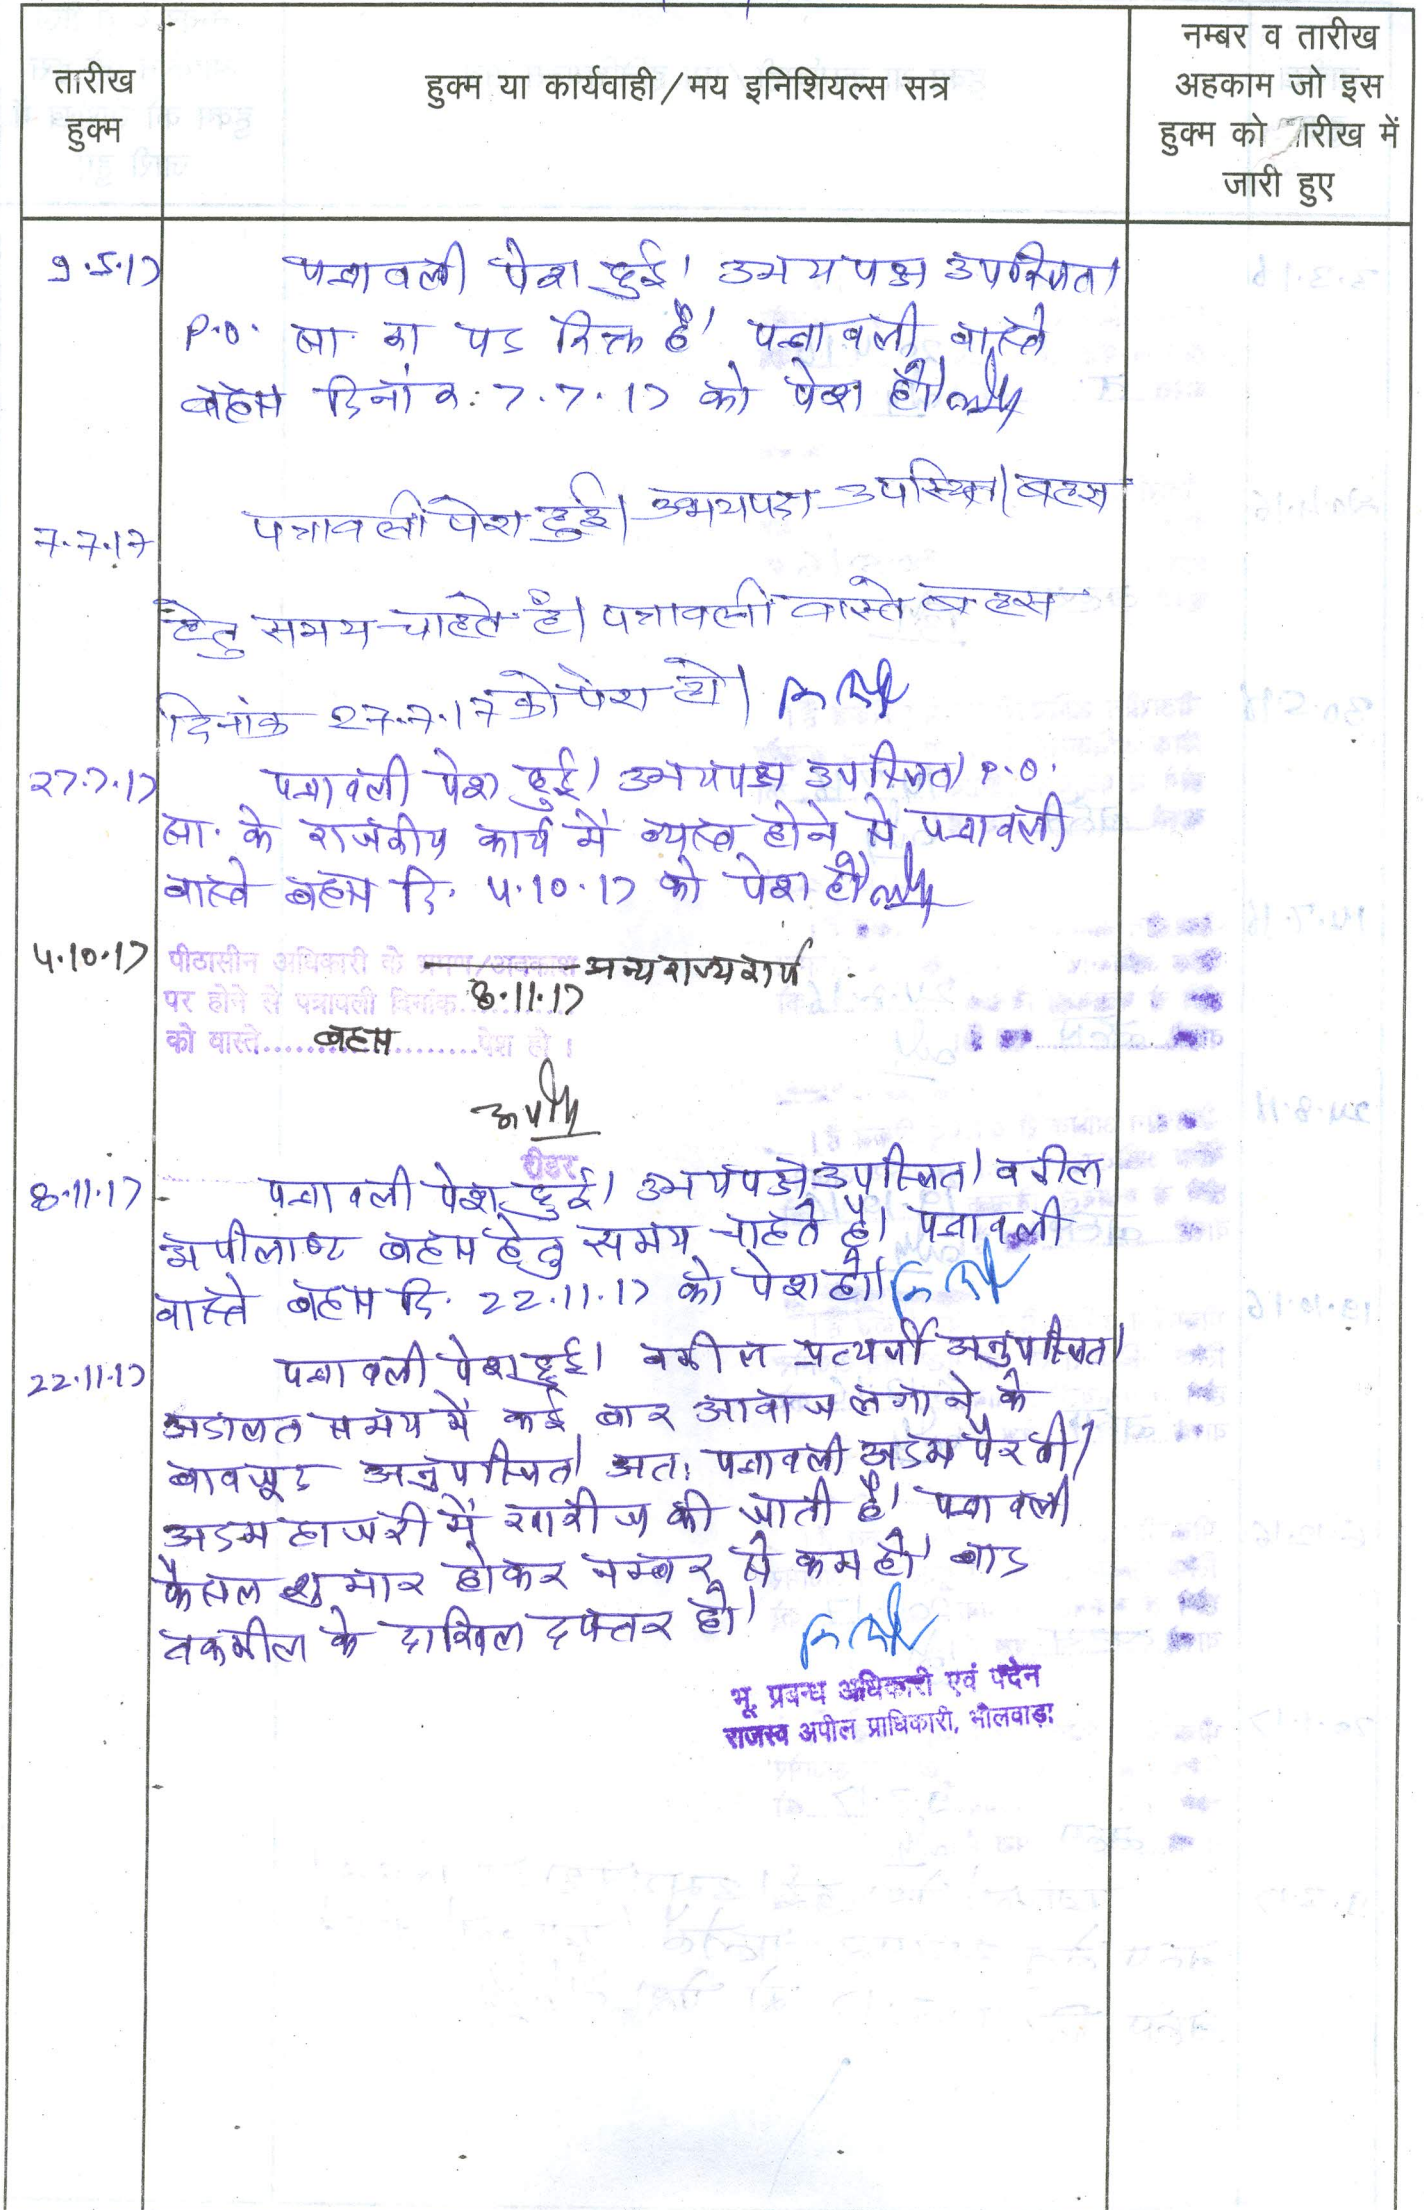 तारीख
हुक्म
हुक्म या कार्यवाही/मय इनिशियल्स सत्र
नम्बर व तारीख
अहकाम जो इस
हुक्म को तारीख में
जारी हुए
9.5.17 पत्रावली पेश हुई। उभयपक्ष उपस्थित।
P.O. सा. का पद रिक्त है। पत्रावली वास्ते
बहस दिनांक: 7.7.17 को पेश हो।
7.7.17 पत्रावली पेश हुई। उभयपक्ष उपस्थित। बहस
हेतु समय चाहते है। पत्रावली वास्ते बहस
दिनांक 27.7.17 को पेश हो।
27.7.17 पत्रावली पेश हुई। उभयपक्ष उपस्थित। P.O.
सा. के राजकीय कार्य में व्यस्त होने से पत्रावली
वास्ते बहस दि. 4.10.17 को पेश हो।
4.10.17 पीठासीन अधिकारी के भ्रमण/अवकाश अन्य राज्य कार्य
पर होने से पत्रावली दिनांक 8.11.17
को वास्ते बहस पेश हो।
रीडर
8.11.17 पत्रावली पेश हुई। उभयपक्ष उपस्थित। वकील
अपीलाण्ट बहस हेतु समय चाहते है। पत्रावली
वास्ते बहस दि. 22.11.17 को पेश हो।
22.11.17 पत्रावली पेश हुई। वकील प्रत्यर्थी अनुपस्थित।
अदालत समय में कई बार आवाज लगाने के
बावजूद अनुपस्थित। अतः पत्रावली अदम पैरवी/
अदम हाजरी में खारीज की जाती है। पत्रावली
फैसल शुमार होकर नम्बर से कम हो। बाद
तकमील के दाखिल दफ्तर हो।
भू. प्रबन्ध अधिकारी एवं पदेन
राजस्व अपील प्राधिकारी, भीलवाड़ा